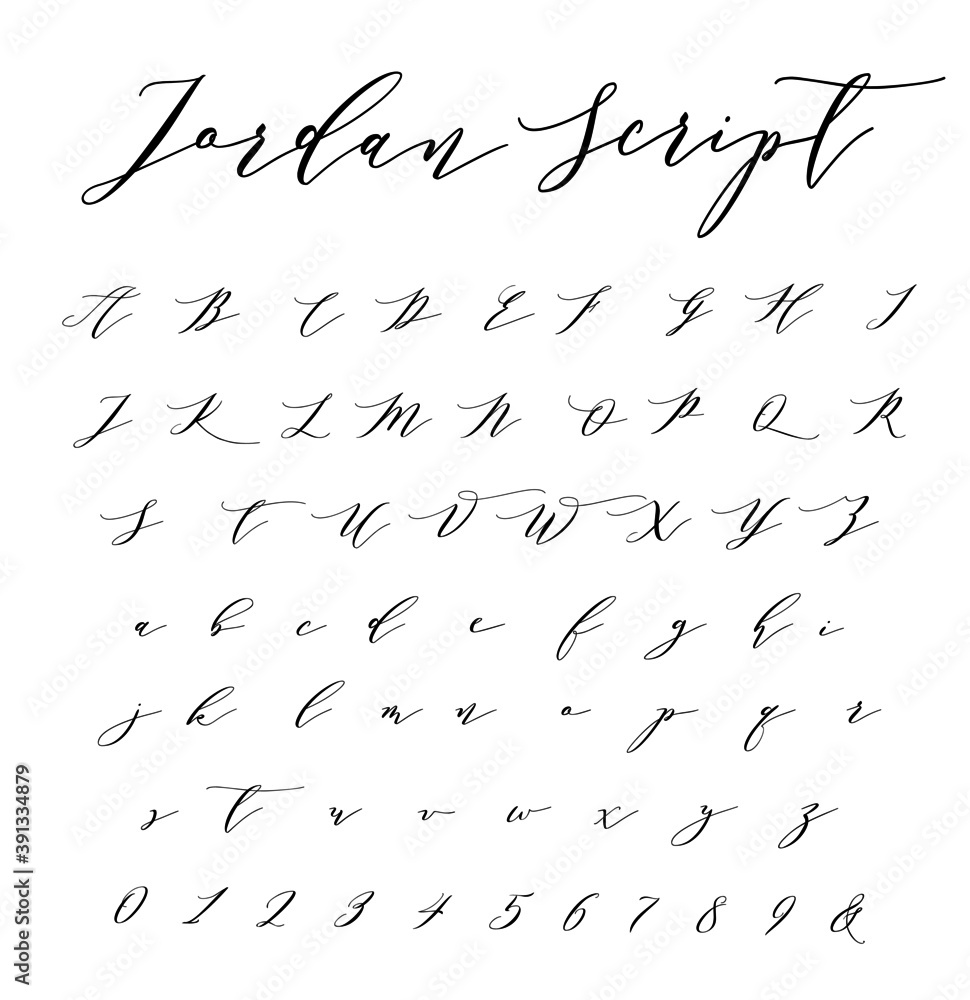 Jordan Script
A B C D E F G H I
J K L M N O P Q R
S T U V W X Y Z
a b c d e f g h i
j k l m n o p q r
s t u v w x y z
0 1 2 3 4 5 6 7 8 9 &
Adobe Stock | #391334879